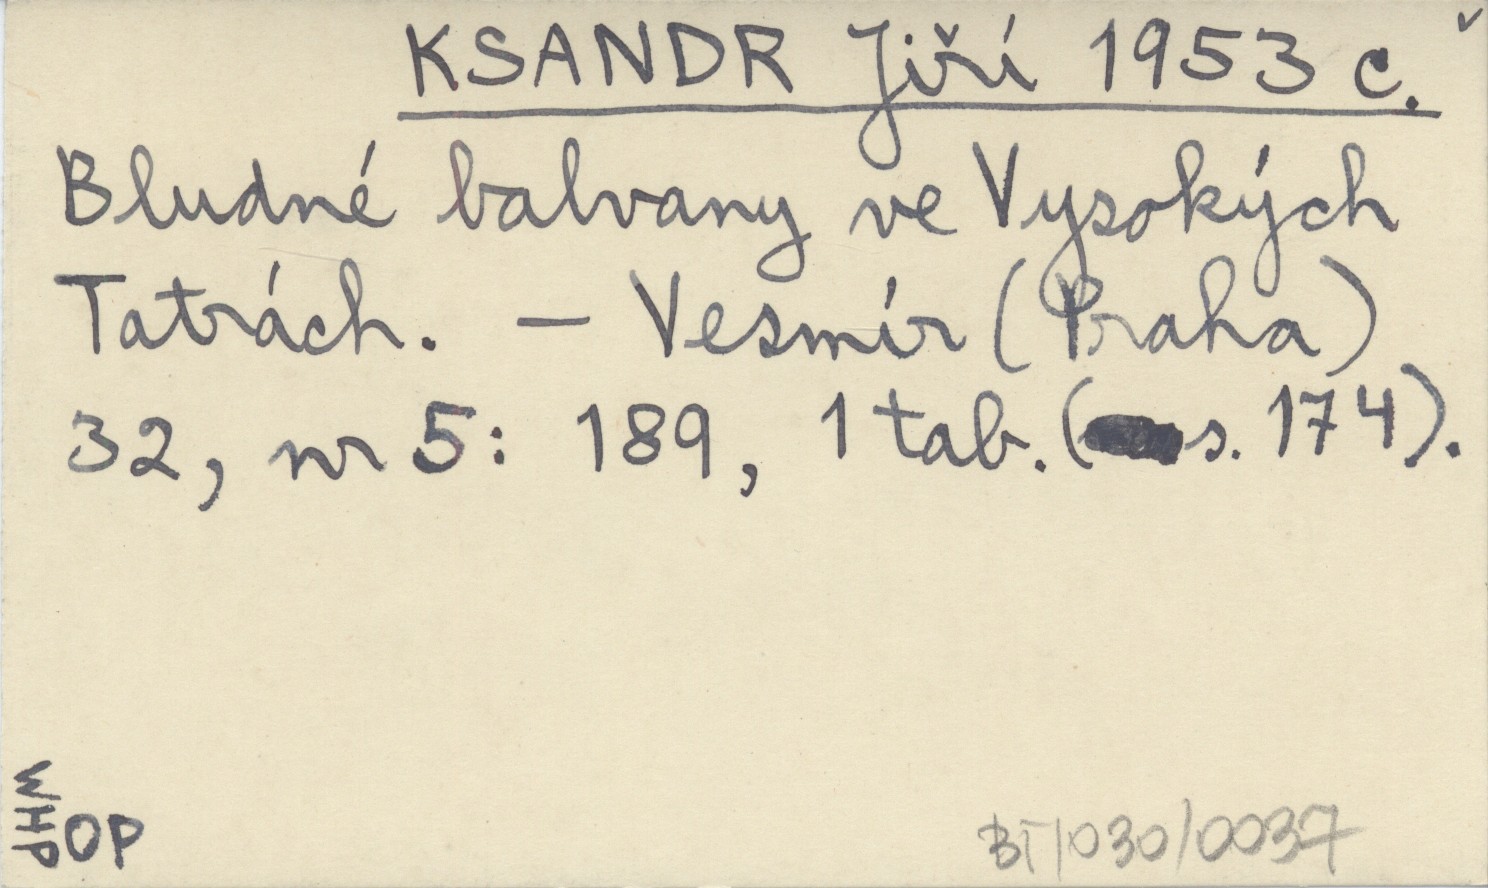 KSANDR Jiří 1953 c.
Bludné balvany ve Vysokých
Tatrách. — Vesmír (Praha)
32, nr 5: 189, 1 tab. (s. 174).
WHP
OP
BT/030/0037